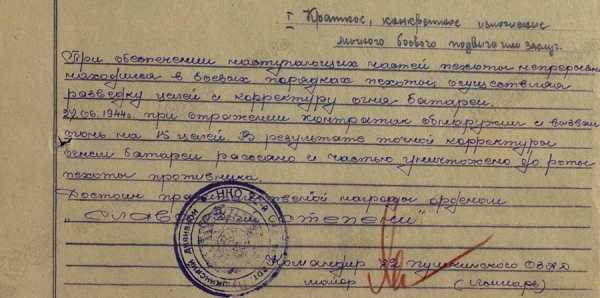 I Краткое, конкретное изложение
личного боевого подвига или заслуг.
При обеспечении наступающих частей пехоты непрерывно
находился в боевых порядках пехоты, осуществляя
разведку целей и корректуру огня батареи.
при отражении контратак обнаружил и вызвал
огонь на 15 целей. В результате точной корректуры
огнем батареи рассеяно и частью уничтожено до роты
пехоты противника.
Достоин награды орденом
"Слава степени"
Командир Пушкинского ОЗАД
майор